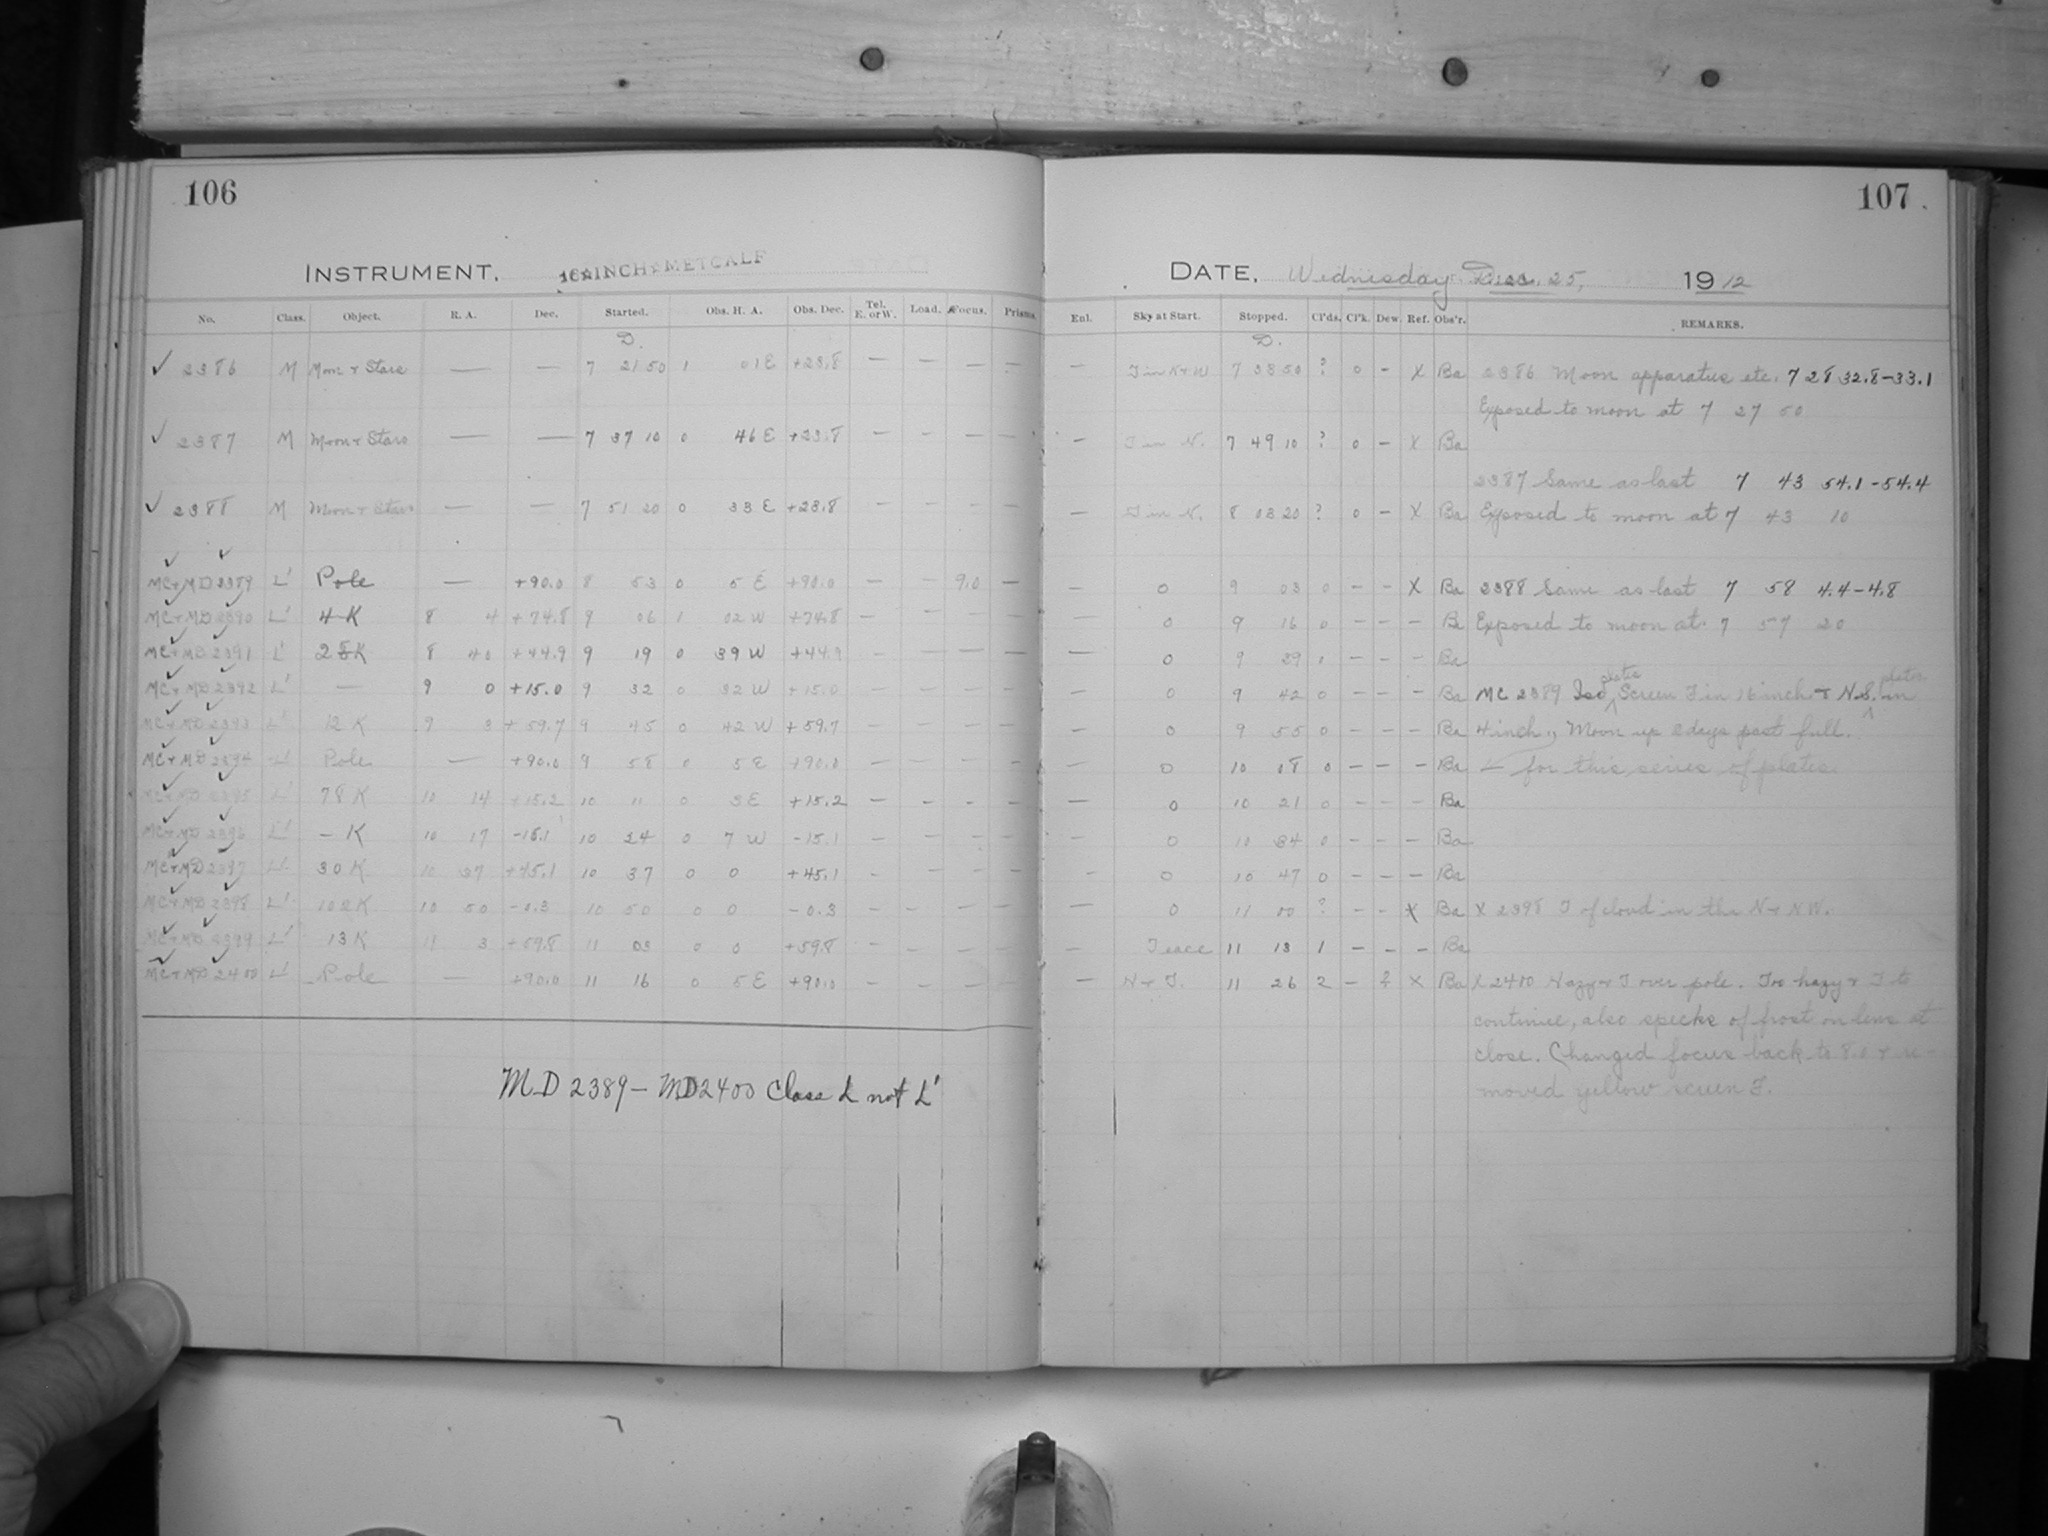 106
107
INSTRUMENT. 16 INCH METCALF
DATE, Wednesday Dec. 25, 1912
No. Class. Object. R. A. Dec. Started. Obs. H. A. Obs. Dec. Tel. E. or W. Load. Focus. Prisms.
Enl. Sky at Start. Stopped. Cl'ds. Cl'k. Dew. Ref. Obs'r. REMARKS.
D. D.
✓ 2386 M Moon + Stars — — 7 21 50 1 01 E +23.8 — — — —
— 7 38 50 ? 0 - X Ba 2386 Moon apparatus etc. 7 28 32.8-33.1
Exposed to moon at 7 27 50
✓ 2387 M Moon + Stars — — 7 37 10 0 46 E +23.8 — — — —
— F in N. 7 49 10 ? 0 - X Ba
2387 Same as last 7 43 54.1-54.4
✓ 2388 M Moon + Stars — — 7 51 20 0 33 E +23.8 — — — —
— F in N. 8 03 20 ? 0 - X Ba Exposed to moon at 7 43 10
MC+MD 2389 L' Pole — +90.0 8 53 0 5 E +90.0 — — 9.0 —
— 0 9 03 0 - - X Ba 2388 Same as last 7 58 4.4-4.8
MC+MD 2390 L' 4 K 8 4 +74.8 9 06 1 02 W +74.8 — — — —
— 0 9 16 0 - - - Ba Exposed to moon at 7 57 20
MC+MD 2391 L' 28 K 8 40 +44.9 9 19 0 39 W +44.9 — — — —
— 0 9 29 1 - - - Ba
MC+MD 2392 L' — 9 0 +15.0 9 32 0 32 W +15.0 — — — —
— 0 9 42 0 - - - Ba MC 2389 Iso plate Screen F in 16 inch + N.S. plates in
MC+MD 2393 L' 12 K 9 3 +59.7 9 45 0 42 W +59.7 — — — —
— 0 9 55 0 - - - Ba 4 inch, Moon up 2 days past full.
MC+MD 2394 L' Pole — +90.0 9 58 0 5 E +90.0 — — — —
— 0 10 08 0 - - - Ba for this series of plates
MC+MD 2395 L' 78 K 10 14 +15.2 10 11 0 3 E +15.2 — — — —
— 0 10 21 0 - - - Ba
MC+MD 2396 L' — K 10 17 -15.1 10 24 0 7 W -15.1 — — — —
— 0 10 34 0 - - - Ba
MC+MD 2397 L' 30 K 10 37 +45.1 10 37 0 0 +45.1 — — — —
— 0 10 47 0 - - - Ba
MC+MD 2398 L' 102 K 10 50 -0.3 10 50 0 0 -0.3 — — — —
— 0 11 00 ? - - X Ba X 2398 F of cloud in the N + NW.
MC+MD 2399 L' 13 K 11 3 +59.8 11 03 0 0 +59.8 — — — —
— 11 13 1 - - - Ba
MC+MD 2400 L' Pole — +90.0 11 16 0 5 E +90.0 — — — —
— H + F. 11 26 2 - ? X Ba X 2400 Hazy + F over pole. Too hazy + F to
continue, also specks of frost on lens at
close. Changed focus back to 8.0 + re-
moved yellow screen F.
MD 2389 - MD 2400 Class L not L'